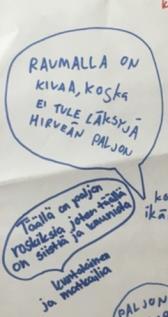 RAUMALLA ON
KIVAA, KOSKA
EI TULE LÄKSYJÄ
HIRVEÄN PALJON
Täällä on paljon
roskiksia joten täällä
on siistiä ja kaunista
ko
ikä
ja matkailia
PALJON